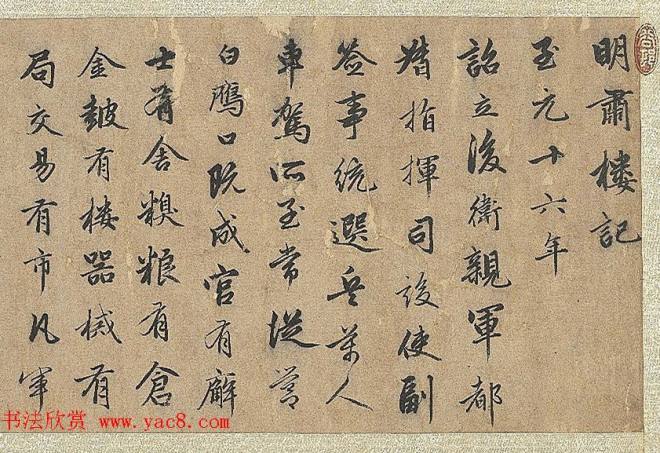 明肅樓記
至元十六年
詔立後衛親軍都
指揮司設使副
簽事統選兵萬人
車駕所至常從營
白鴈口既成官有廨
士有舍糗粮有倉
金皷有樓器械有
局交易有市凡軍
书法欣赏 www.yac8.com